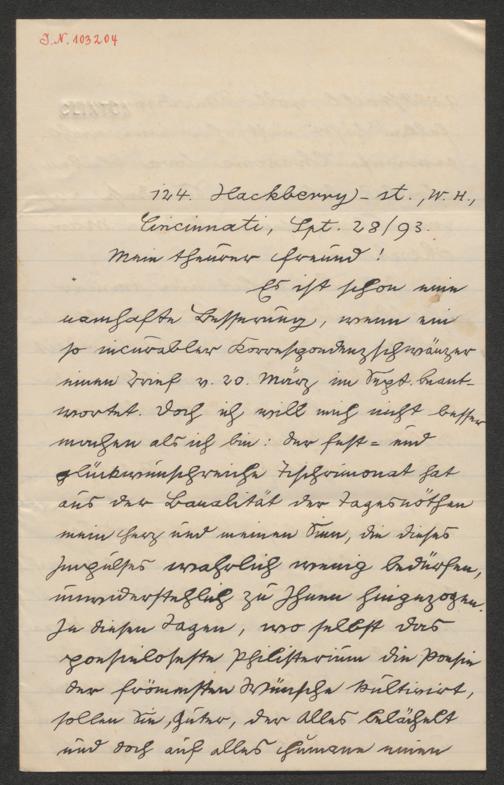 J.N. 103204
124. Hackberry-st., W.H.,
Cincinnati, Spt. 28/93.
Mein theurer Freund!
Es ist schon eine
namhafte Besserung, wenn ein
so incurabler Korrespondenzschwänzer
einen Brief v. 20. März im Sept. beant-
wortet. Doch ich will mich nicht besser
machen als ich bin: der fest= und
glückwunschreiche Tischrimonat hat
aus der Banalität der Tagesnöthen
mein Herz und meinen Sinn, die dieses
Impulses wahrlich wenig bedürfen,
unwiderstehlich zu Ihnen hingezogen.
In diesen Tagen, wo selbst das
poesieloseste Philisterium die Poesie
der frömmsten Wünsche kultivirt,
sollen Sie, Guter, der Alles belächelt
und doch auf alles Humane einen